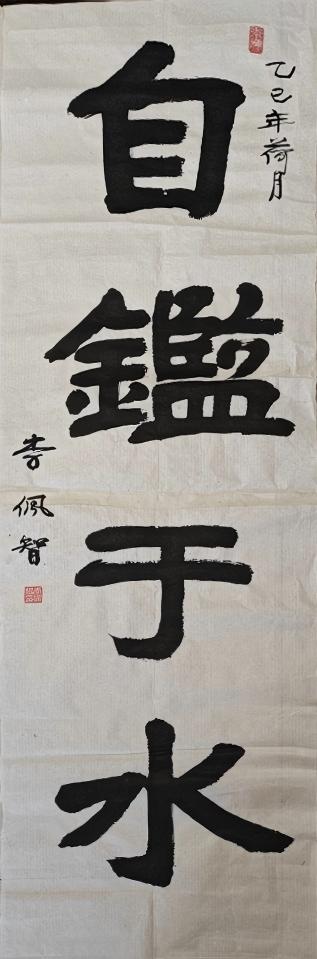 乙巳年荷月
自鑑于水
李佩智